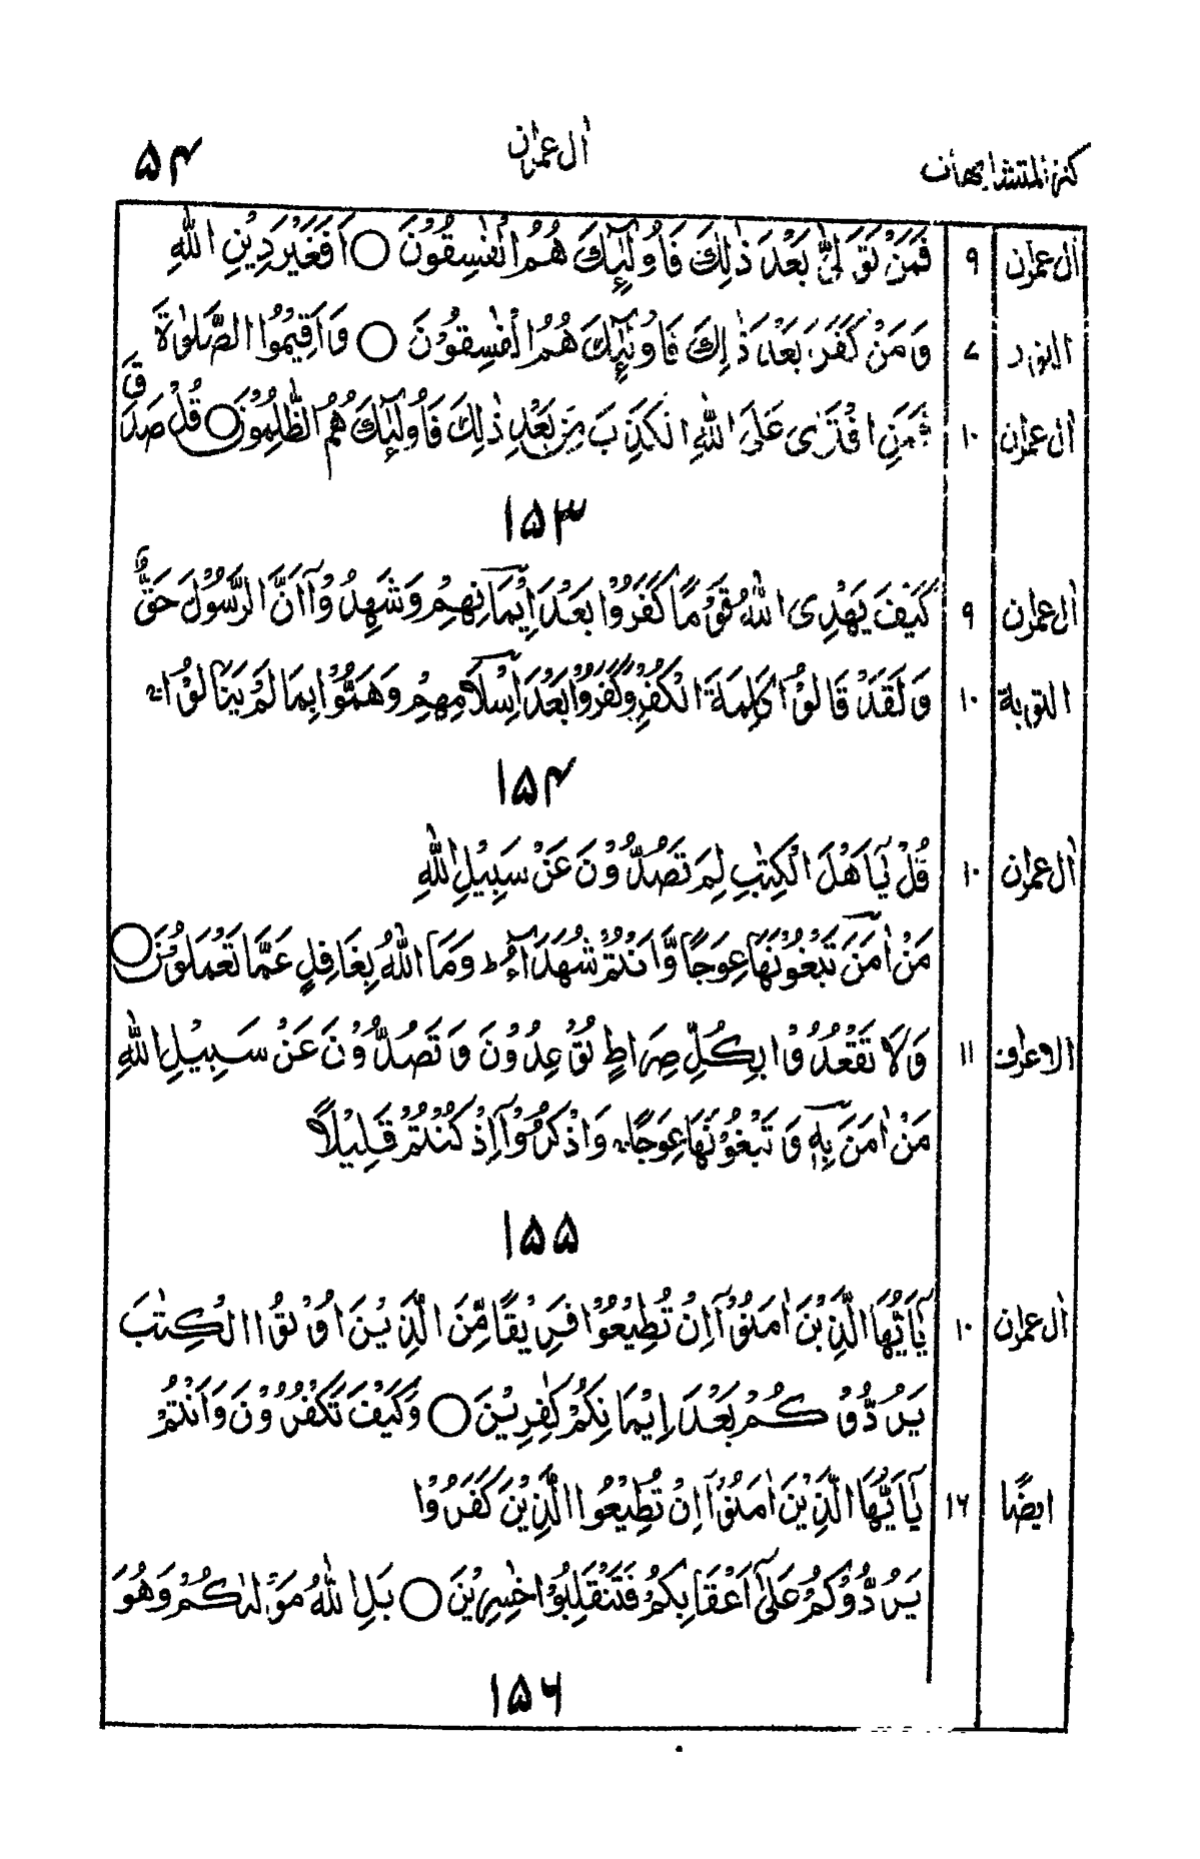 كنز المتشابهات اٰل عمرٰن ۵۴
اٰل عمرٰن ۹ فَمَنْ تَوَلّٰى بَعْدَ ذٰلِكَ فَاُولٰٓئِكَ هُمُ الْفٰسِقُوْنَ ○ اَفَغَيْرَ دِيْنِ اللّٰهِ
النور ۷ وَمَنْ كَفَرَ بَعْدَ ذٰلِكَ فَاُولٰٓئِكَ هُمُ الْفٰسِقُوْنَ ○ وَاَقِيْمُوا الصَّلٰوةَ
اٰل عمرٰن ۱۰ فَمَنِ افْتَرٰى عَلَى اللّٰهِ الْكَذِبَ مِنْۢ بَعْدِ ذٰلِكَ فَاُولٰٓئِكَ هُمُ الظّٰلِمُوْنَ ○ قُلْ صَدَقَ
۱۵۳
اٰل عمرٰن ۹ كَيْفَ يَهْدِى اللّٰهُ قَوْمًا كَفَرُوْا بَعْدَ اِيْمَانِهِمْ وَشَهِدُوْٓا اَنَّ الرَّسُوْلَ حَقٌّ
التوبة ۱۰ وَلَقَدْ قَالُوْا كَلِمَةَ الْكُفْرِ وَكَفَرُوْا بَعْدَ اِسْلَامِهِمْ وَهَمُّوْا بِمَا لَمْ يَنَالُوْا ۚ
۱۵۴
اٰل عمرٰن ۱۰ قُلْ يٰٓاَهْلَ الْكِتٰبِ لِمَ تَصُدُّوْنَ عَنْ سَبِيْلِ اللّٰهِ
مَنْ اٰمَنَ تَبْغُوْنَهَا عِوَجًا وَّاَنْتُمْ شُهَدَآءُ ؕ وَمَا اللّٰهُ بِغَافِلٍ عَمَّا تَعْمَلُوْنَ ○
الاعراف ۱۱ وَلَا تَقْعُدُوْا بِكُلِّ صِرَاطٍ تُوْعِدُوْنَ وَتَصُدُّوْنَ عَنْ سَبِيْلِ اللّٰهِ
مَنْ اٰمَنَ بِهٖ وَتَبْغُوْنَهَا عِوَجًا ۚ وَاذْكُرُوْٓا اِذْ كُنْتُمْ قَلِيْلًا
۱۵۵
اٰل عمرٰن ۱۰ يٰٓاَيُّهَا الَّذِيْنَ اٰمَنُوْٓا اِنْ تُطِيْعُوْا فَرِيْقًا مِّنَ الَّذِيْنَ اُوْتُوا الْكِتٰبَ
يَرُدُّوْكُمْ بَعْدَ اِيْمَانِكُمْ كٰفِرِيْنَ ○ وَكَيْفَ تَكْفُرُوْنَ وَاَنْتُمْ
ايضًا ۱۶ يٰٓاَيُّهَا الَّذِيْنَ اٰمَنُوْٓا اِنْ تُطِيْعُوا الَّذِيْنَ كَفَرُوْا
يَرُدُّوْكُمْ عَلٰٓى اَعْقَابِكُمْ فَتَنْقَلِبُوْا خٰسِرِيْنَ ○ بَلِ اللّٰهُ مَوْلٰىكُمْ وَهُوَ
۱۵۶